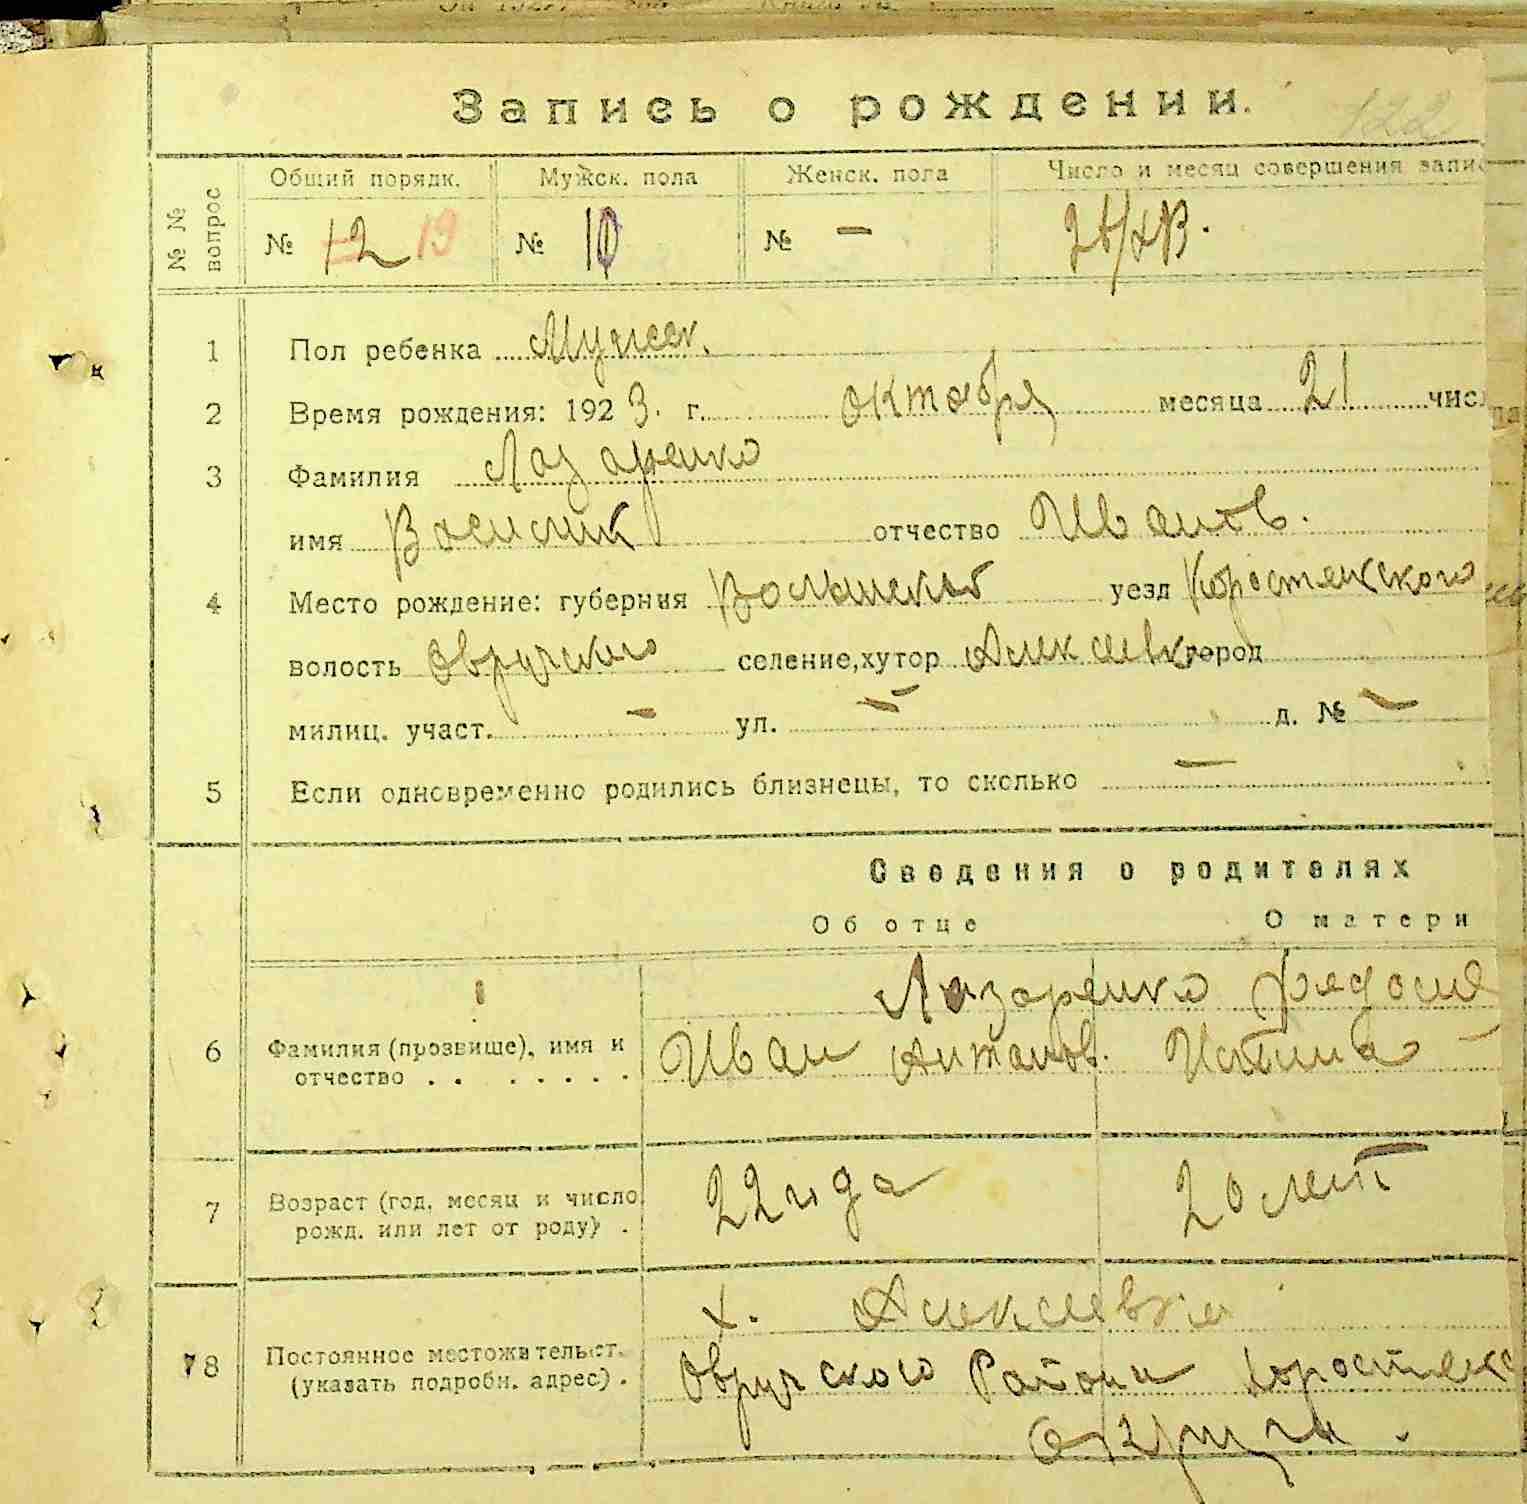 Запись о рождении.
122
№ № вопрос
Общий порядк. Мужск. пола Женск. пола Число и месяц совершения запис
№ 12 19 № 10 № —
1 Пол ребенка Мужск.
2 Время рождения: 1923. г. октября месяца 21 числ
3 Фамилия Лазаренко
имя Василик отчество Иванов.
4 Место рождение: губерния Волынской уезд Коростянского
волость Овручского селение,хутор Алексеевка город
милиц. участ. — ул. — д. № —
5 Если одновременно родились близнецы, то сколько —
Сведения о родителях
Об отце О матери
Лазаренко Федосия
6 Фамилия (прозвище), имя и отчество . . . . . . . Иван Антонов.
7 Возраст (год. месяц и число рожд. или лет от роду) . 22 года 20 лет
х. Алексеевка
78 Постоянное местожительст. (указать подробн. адрес) . Овручского Района Коростянс
округа.